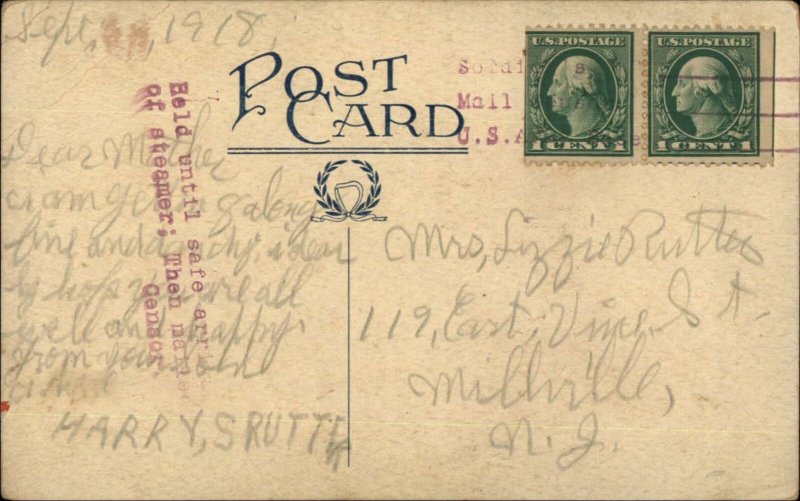 Sept, 1918,
POST
CARD
Soldi s
Mail
U.S.A
U.S. POSTAGE
1 CENT 1
U.S. POSTAGE
1 CENT 1
Held until safe arri
of steamer; Then maile
Censor
Dear Mother
i am getting along
fine and dandy, i dear
ly hope you are all
well and happy,
from your son
HARRY, S RUTTER
Mrs, Lizzie Rutter
119, East, Vine St.
Millville,
N. J.